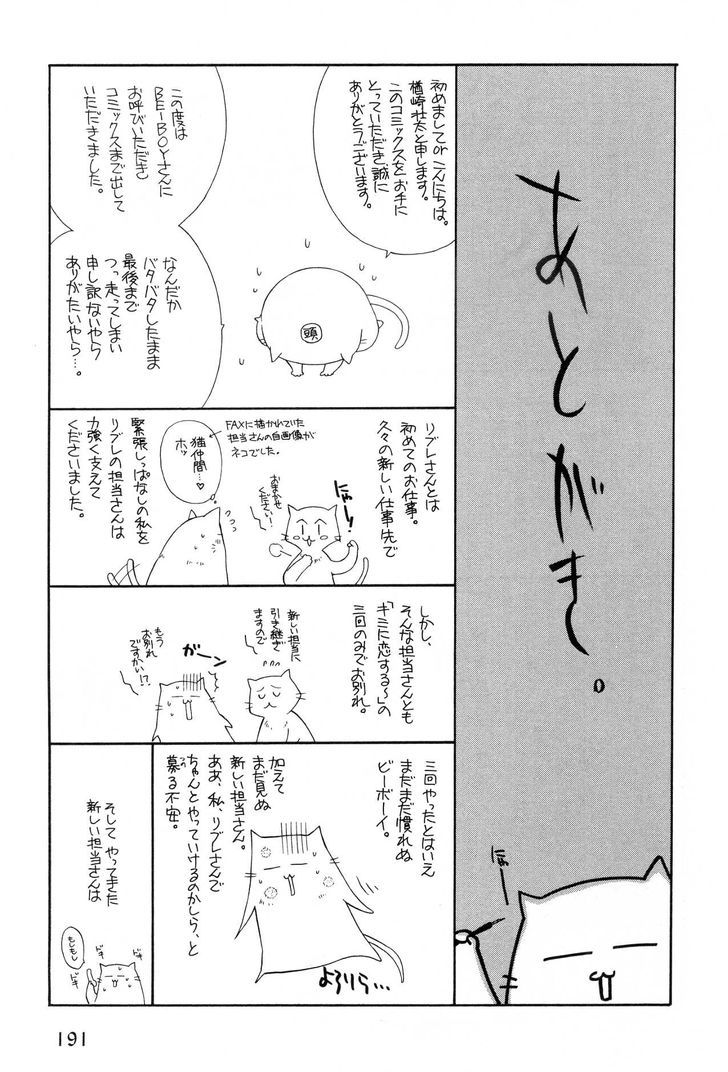 あとがき。
にゃー
初めましてor こんにちは。
楢崎壮太と申します。
このコミックスをお手に
とっていただき誠に
ありがとうございます。
頭
この度は
BE-BOYさんに
お呼びいただき
コミックスまで出して
いただきました。
なんだか
バタバタしたまま
最後まで
つっ走ってしまい
申し訳ないやら
ありがたいやら…。
リブレさんとは
初めてのお仕事。
久々の新しい仕事先で
にゃー!
おまかせ
ください!
FAXに描かれていた
担当さんの自画像が
ネコでした。
猫仲間…♡
ホッ
緊張しっぱなしの私を
リブレの担当さんは
力強く支えて
くださいました。
しかし、
そんな担当さんとも
「キミに恋する〜」の
三回のみでお別れ。
新しい担当に
引き継ぎ
ますので
ガーン
もう
お別れ
ですかい!?
三回やったとはいえ
まだまだ慣れぬ
ビーボーイ。
加えて
まだ見ぬ
新しい担当さん。
ああ、私、リブレさんで
ちゃんとやっていけるのかしら、と
募る不安。
つの
よろりら…
そして やってきた
新しい担当さんは
もしもし
ドキ
ドキ
191